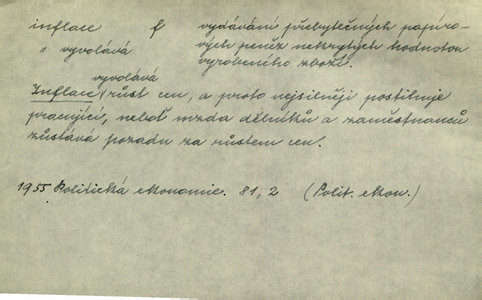 inflace f vydávání přebytečných papíro-
„ vyvolává vých peněz nekrytých hodnotou
vyrobeného zboží.
vyvolává
Inflace růst cen, a proto nejsilněji postihuje
pracující, neboť mzda dělníků a zaměstnanců
zůstává pozadu za růstem cen.
1955 Politická ekonomie. 81, 2 (Polit. ekon.)